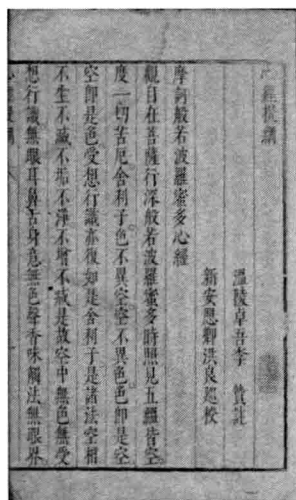 心經提綱
溫陵卓吾李 贄註
新安思卿洪良廵校
摩訶般若波羅蜜多心經
觀自在菩薩行深般若波羅蜜多時照見五蘊皆空
度一切苦厄舍利子色不異空空不異色色卽是空
空卽是色受想行識亦復如是舍利子是諸法空相
不生不滅不垢不淨不增不減是故空中無色無受
想行識無眼耳鼻舌身意無色聲香味觸法無眼界